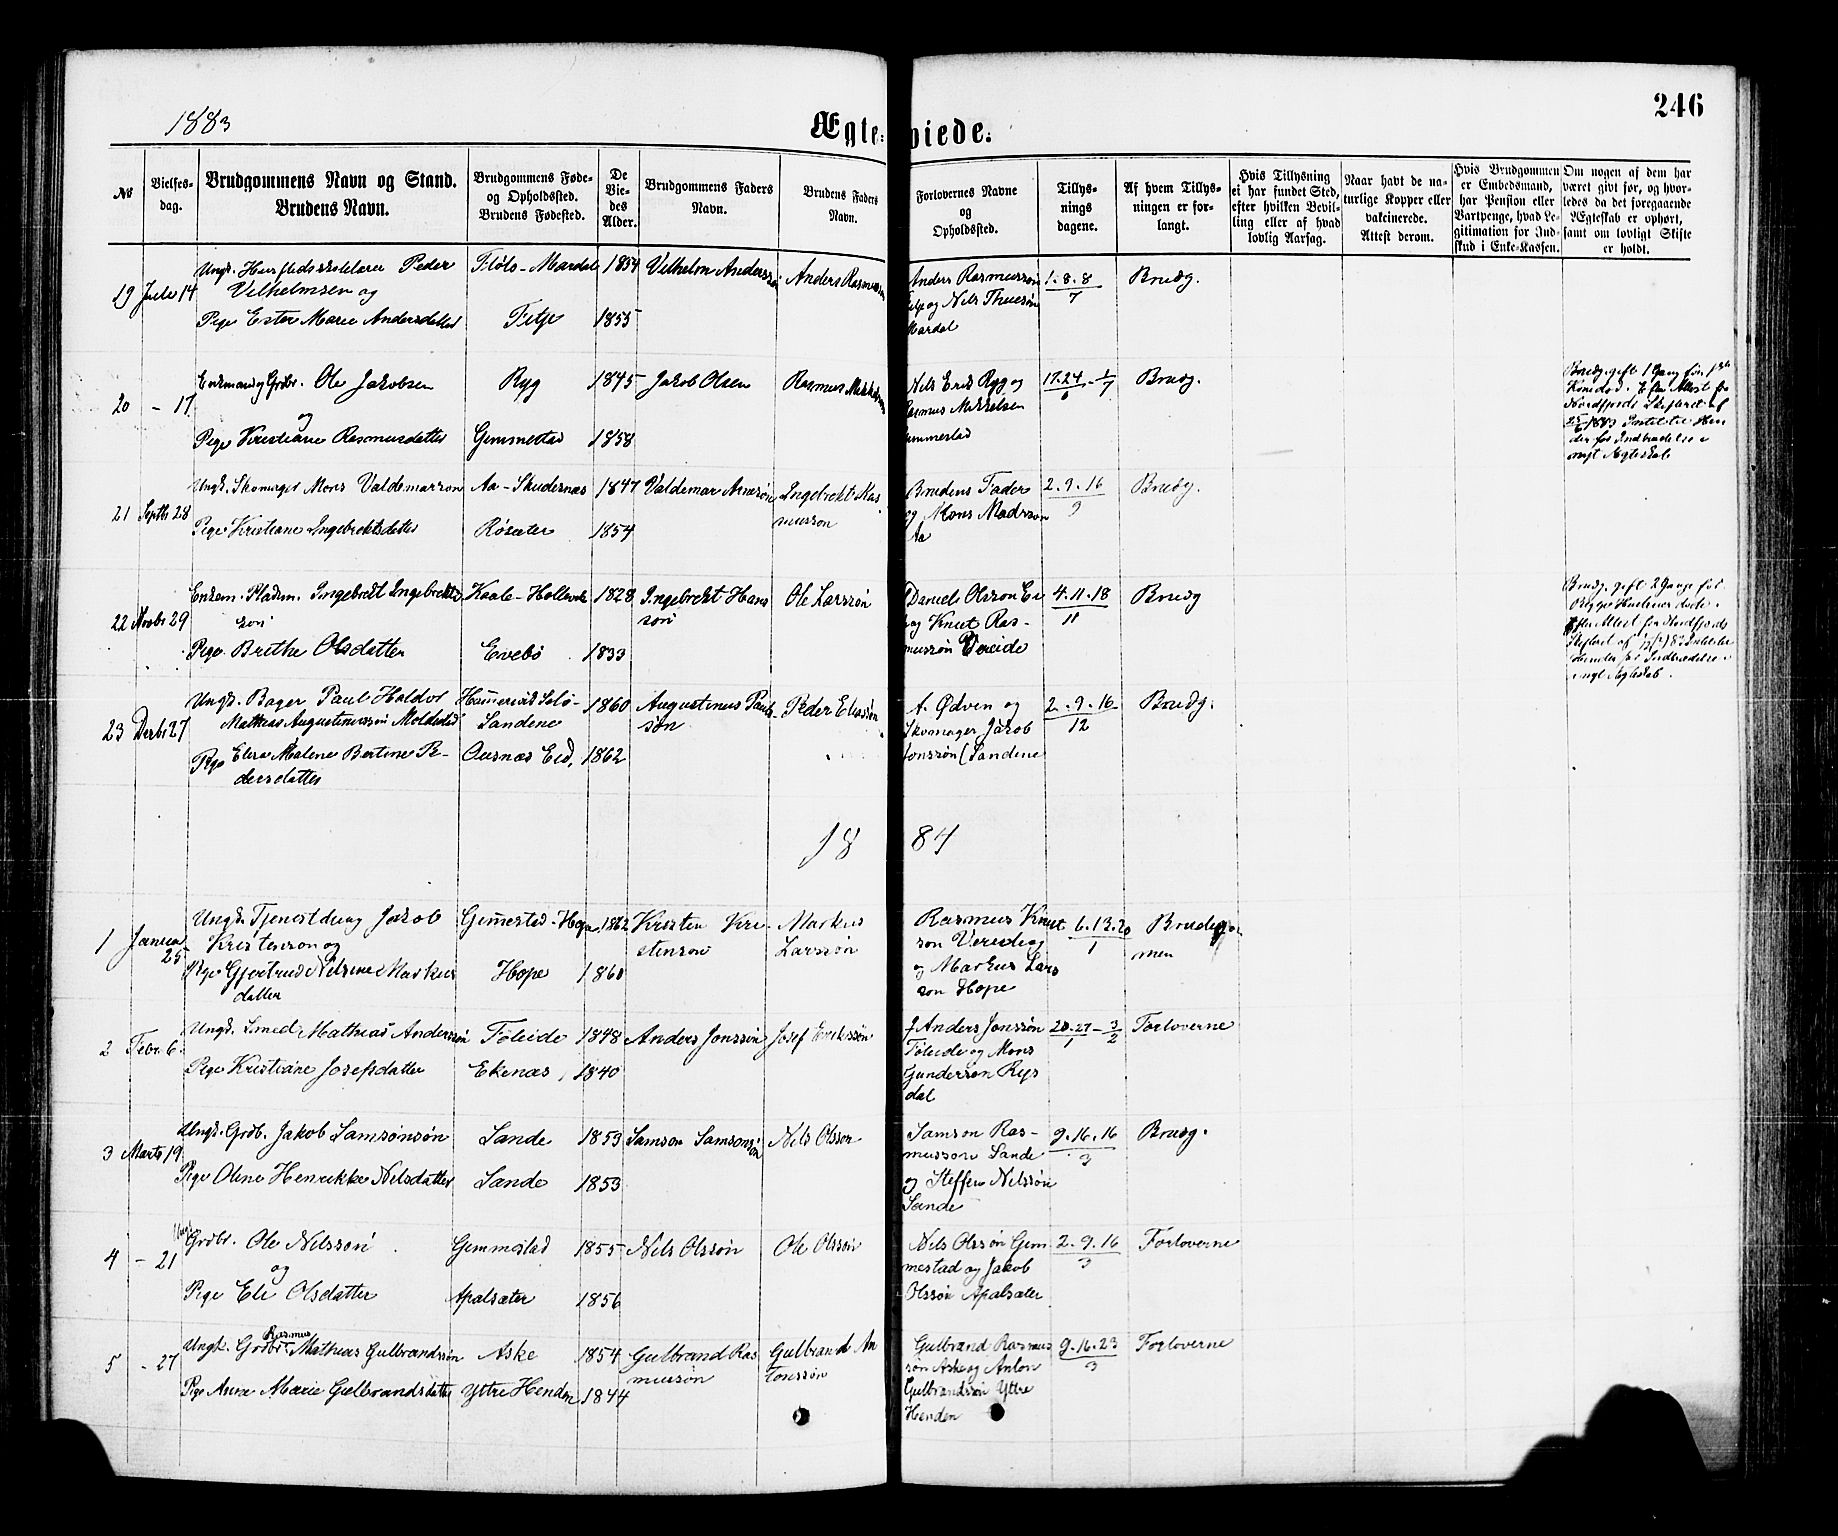 246
1883
Ægteviede.
No
Vielses-
dag.
Brudgommens Navn og Stand.
Brudens Navn.
Brudgommens Føde-
og Opholdssted.
Brudens Fødested.
De
Vie-
des
Alder.
Brudgommens Faders
Navn.
Brudens Faders
Navn.
Forlovernes Navne
og
Opholdssted.
Tillys-
nings
dagene.
Af hvem Tillys-
ningen er for-
langt.
Hvis Tillysning
ei har fundet Sted,
efter hvilken Bevil-
ling eller af hvad
lovlig Aarsag.
Naar havt de na-
turlige Kopper eller
vakcinerede.
Attest derom.
Hvis Brudgommen
er Embedsmand,
har Pension eller
Vartpenge, hvad Le-
gitimation for Ind-
skud i Enke-Kassen.
Om nogen af dem har
været givt før, og hvor-
ledes da det foregaaende
Ægteskab er ophørt,
samt om lovligt Skifte
er holdt.
19 Juli 14
Ungk. Peder
Velhelmsen og
Pige Ester Marie Andersdatter
Fløls - Mardal
Fetje
1854
1855
Velhelm Anderssøn
Anders Rasmussen
Anders Rasmussøn
Fetje og Nils Thuesøn
Mardal
1.8.8
7
Brudg.
20 - 17
Enkemand og Grdbr. Ole Jakobsen
og
Pige Kristiane Rasmusdatter
Ryg
Gemmestad
1845
1858
Jakob Olsen
Rasmus Mikkelsen
Nils Ryg og
Rasmus Mikkelsen
Gemmestad
17.24 - 1
6 7
Brudg.
Brudg. gift 1 Gang før.
21 Septbr 28
Ungk. Skomager Mons Valdemarsøn
Pige Kristiane Ingebrektsdatter
Aa - Skudesnæs
Røsæter
1847
1854
Valdemar Arnesøn
Ingebrekt Ras
musson
Brudens Fader
og Mons Madsson
Aa
2.9.16
9
Brudg.
22 Novbr 29
Enkem. Pladsm. Ingebrekt Ingebrekts
son
Pige Brithe Olsdatter
Evebø
1828
1833
Ingebrekt Hans
søn
Ole Larssøn
Daniel Olsson
og Knut Ras-
mussøn Vereide
4.11.18
11
Brudg
Brudg. gift 2 Gange før.
23 Decbr 27
Ungk. Bager Paul Haldor
Mathias Augustinussøn Moldestad
Pige Elisa Malene Bertine Pe-
dersdatter
Sandene
Eid,
1860
1862
Augustinus Pauls-
søn
Peder Eliassøn
A. Ødven og
Skomager Jakob
Jonssøn (Sandene
2.9.16
12
Brudg.
1884
1 Januar
25
Ungk. Tjenestdreng Jakob
Kristenson og
Pige Gjertrud Nelsine Markus
datter
Gemmestad - Hope
Hope
1862
1860
Kristen Kri-
stenson
Markus
Larssøn
Rasmus Knut
son Vereide og
og Markus Lars
son Hope
6.13.20
1
Brudgom
men
2 Febr. 6.
Ungk. Smed Mathias Anderssøn
Pige Kristiane Josefsdatter
Føleide
Ekenæs
1848
1840
Anders Jonssøn
Josef Enokssøn
Anders Jonssøn
Føleide og Mons
Gunderson Rys
dal
20.27 - 3
1 2
Forloverne
3 Marts 19
Ungk. Grdb. Jakob Samsønsøn
Pige Oline Henrikke Nilsdatter
Sande
Sande
1853
1853
Samson Samsonsøn
Nils Olsson
Samson Ras-
musson Sande
og Steffen Nilssøn
Sande
9.16.16
3
Brudg.
4 - 21
Ungk
Grdbr. Ole Nilsson
og
Pige Eli Olsdatter
Gemmestad
Apalsæter
1855
1856
Nils Olssøn
Ole Olssøn
Nils Olssøn Gem
mestad og Jakob
Olssøn Apalsæter
2.9.16
3
Forloverne
5 - 27
Ungk. Grdbr. Rasmus Mathias Gulbrandsøn
Pige Anne Marie Gulbrandsdatter
Aske
Yttre Henden
1854
1844
Gulbrand Ras
mussøn
Gulbrand An
tonssøn
Gulbrand Rasmus
søn Aske og Anton
Gulbrandsøn Yttre
Henden
9.16.23
3
Forloverne